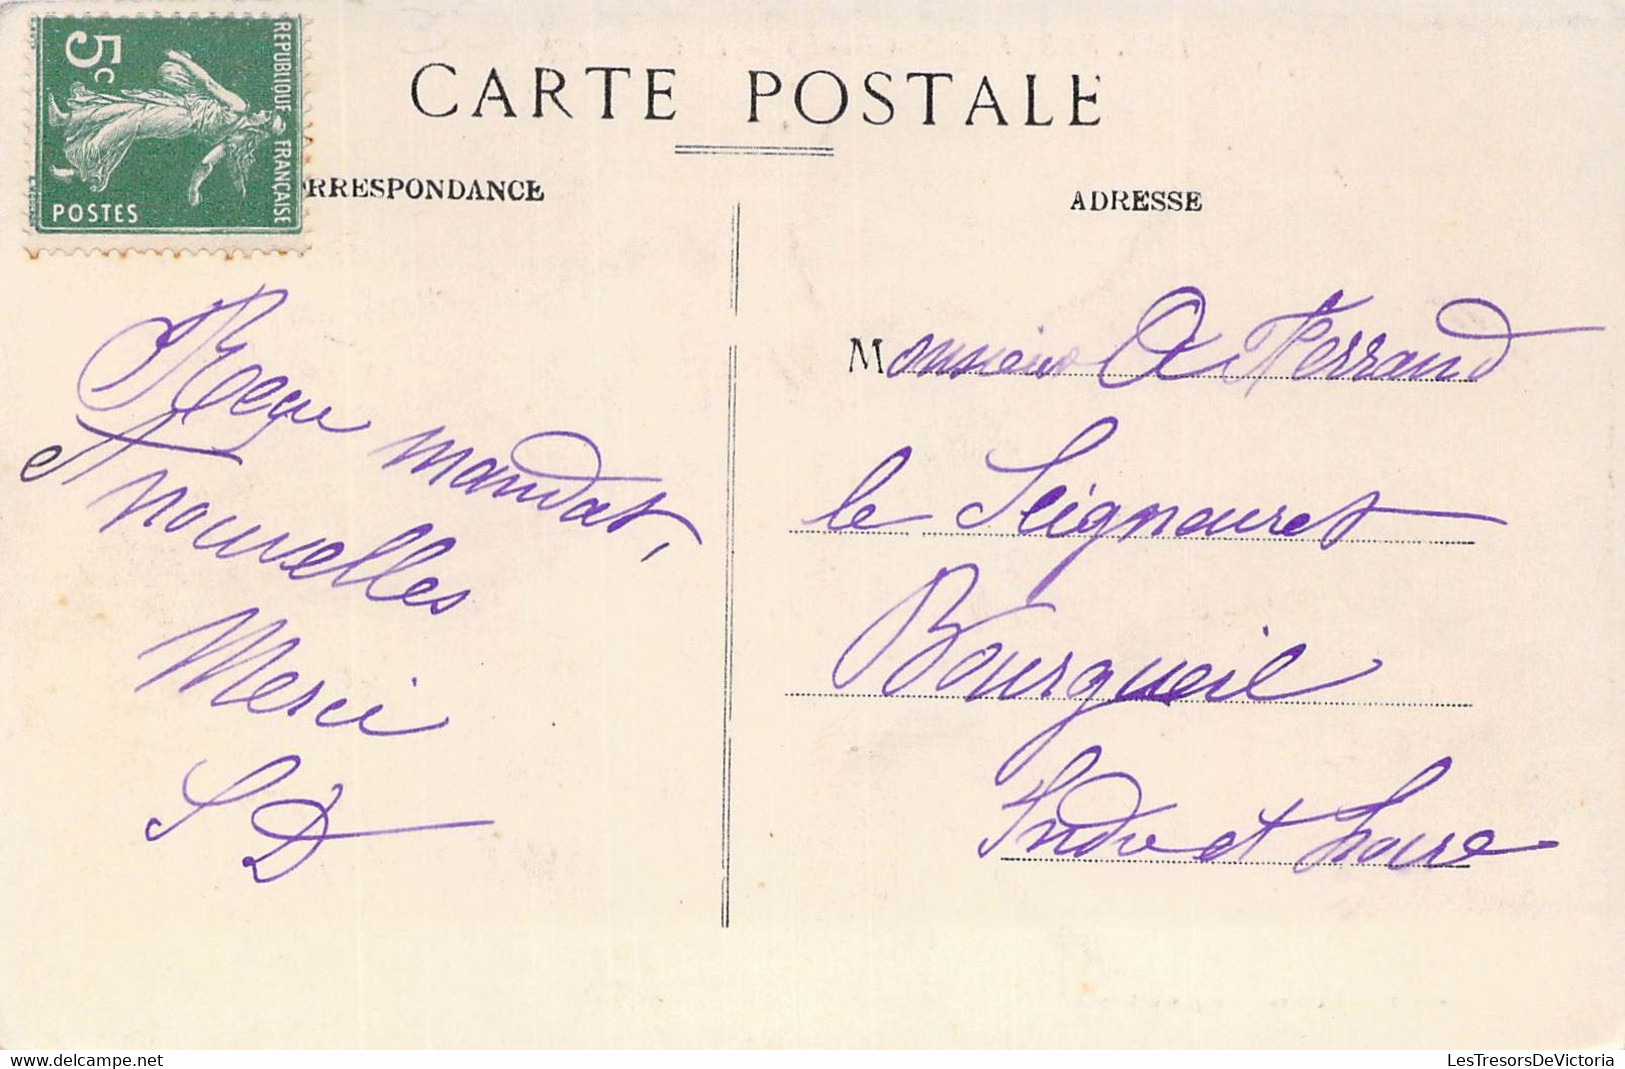 REPUBLIQUE FRANÇAISE
5c
POSTES
CARTE POSTALE
RRESPONDANCE
ADRESSE
Reçu mandat,
et nouvelles
Merci
S D
Monsieur A Ferrand
le Seigneuret
Bourgueil
Indre et Loire
delcampe.net
LesTresorsDeVictoria